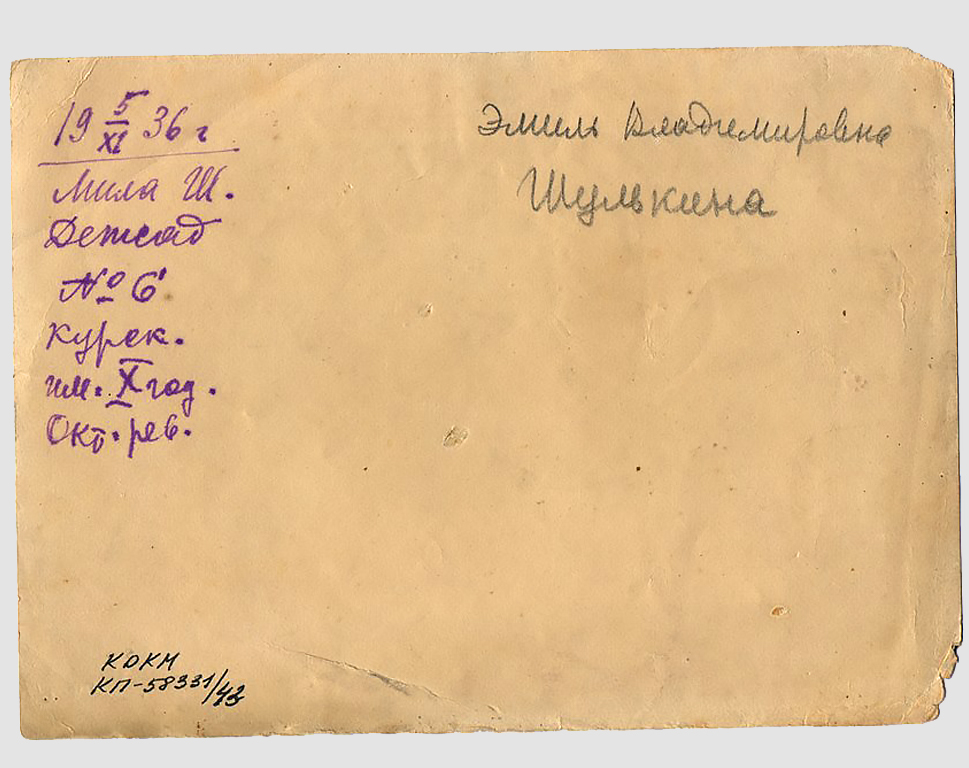 19 5/XI 36 г
Мила Ш.
Детсад
№ 6
Курск.
им. X год.
Окт. рев.
Эмиль Владимировна
Шулькина
КОКМ
КП-58331/43